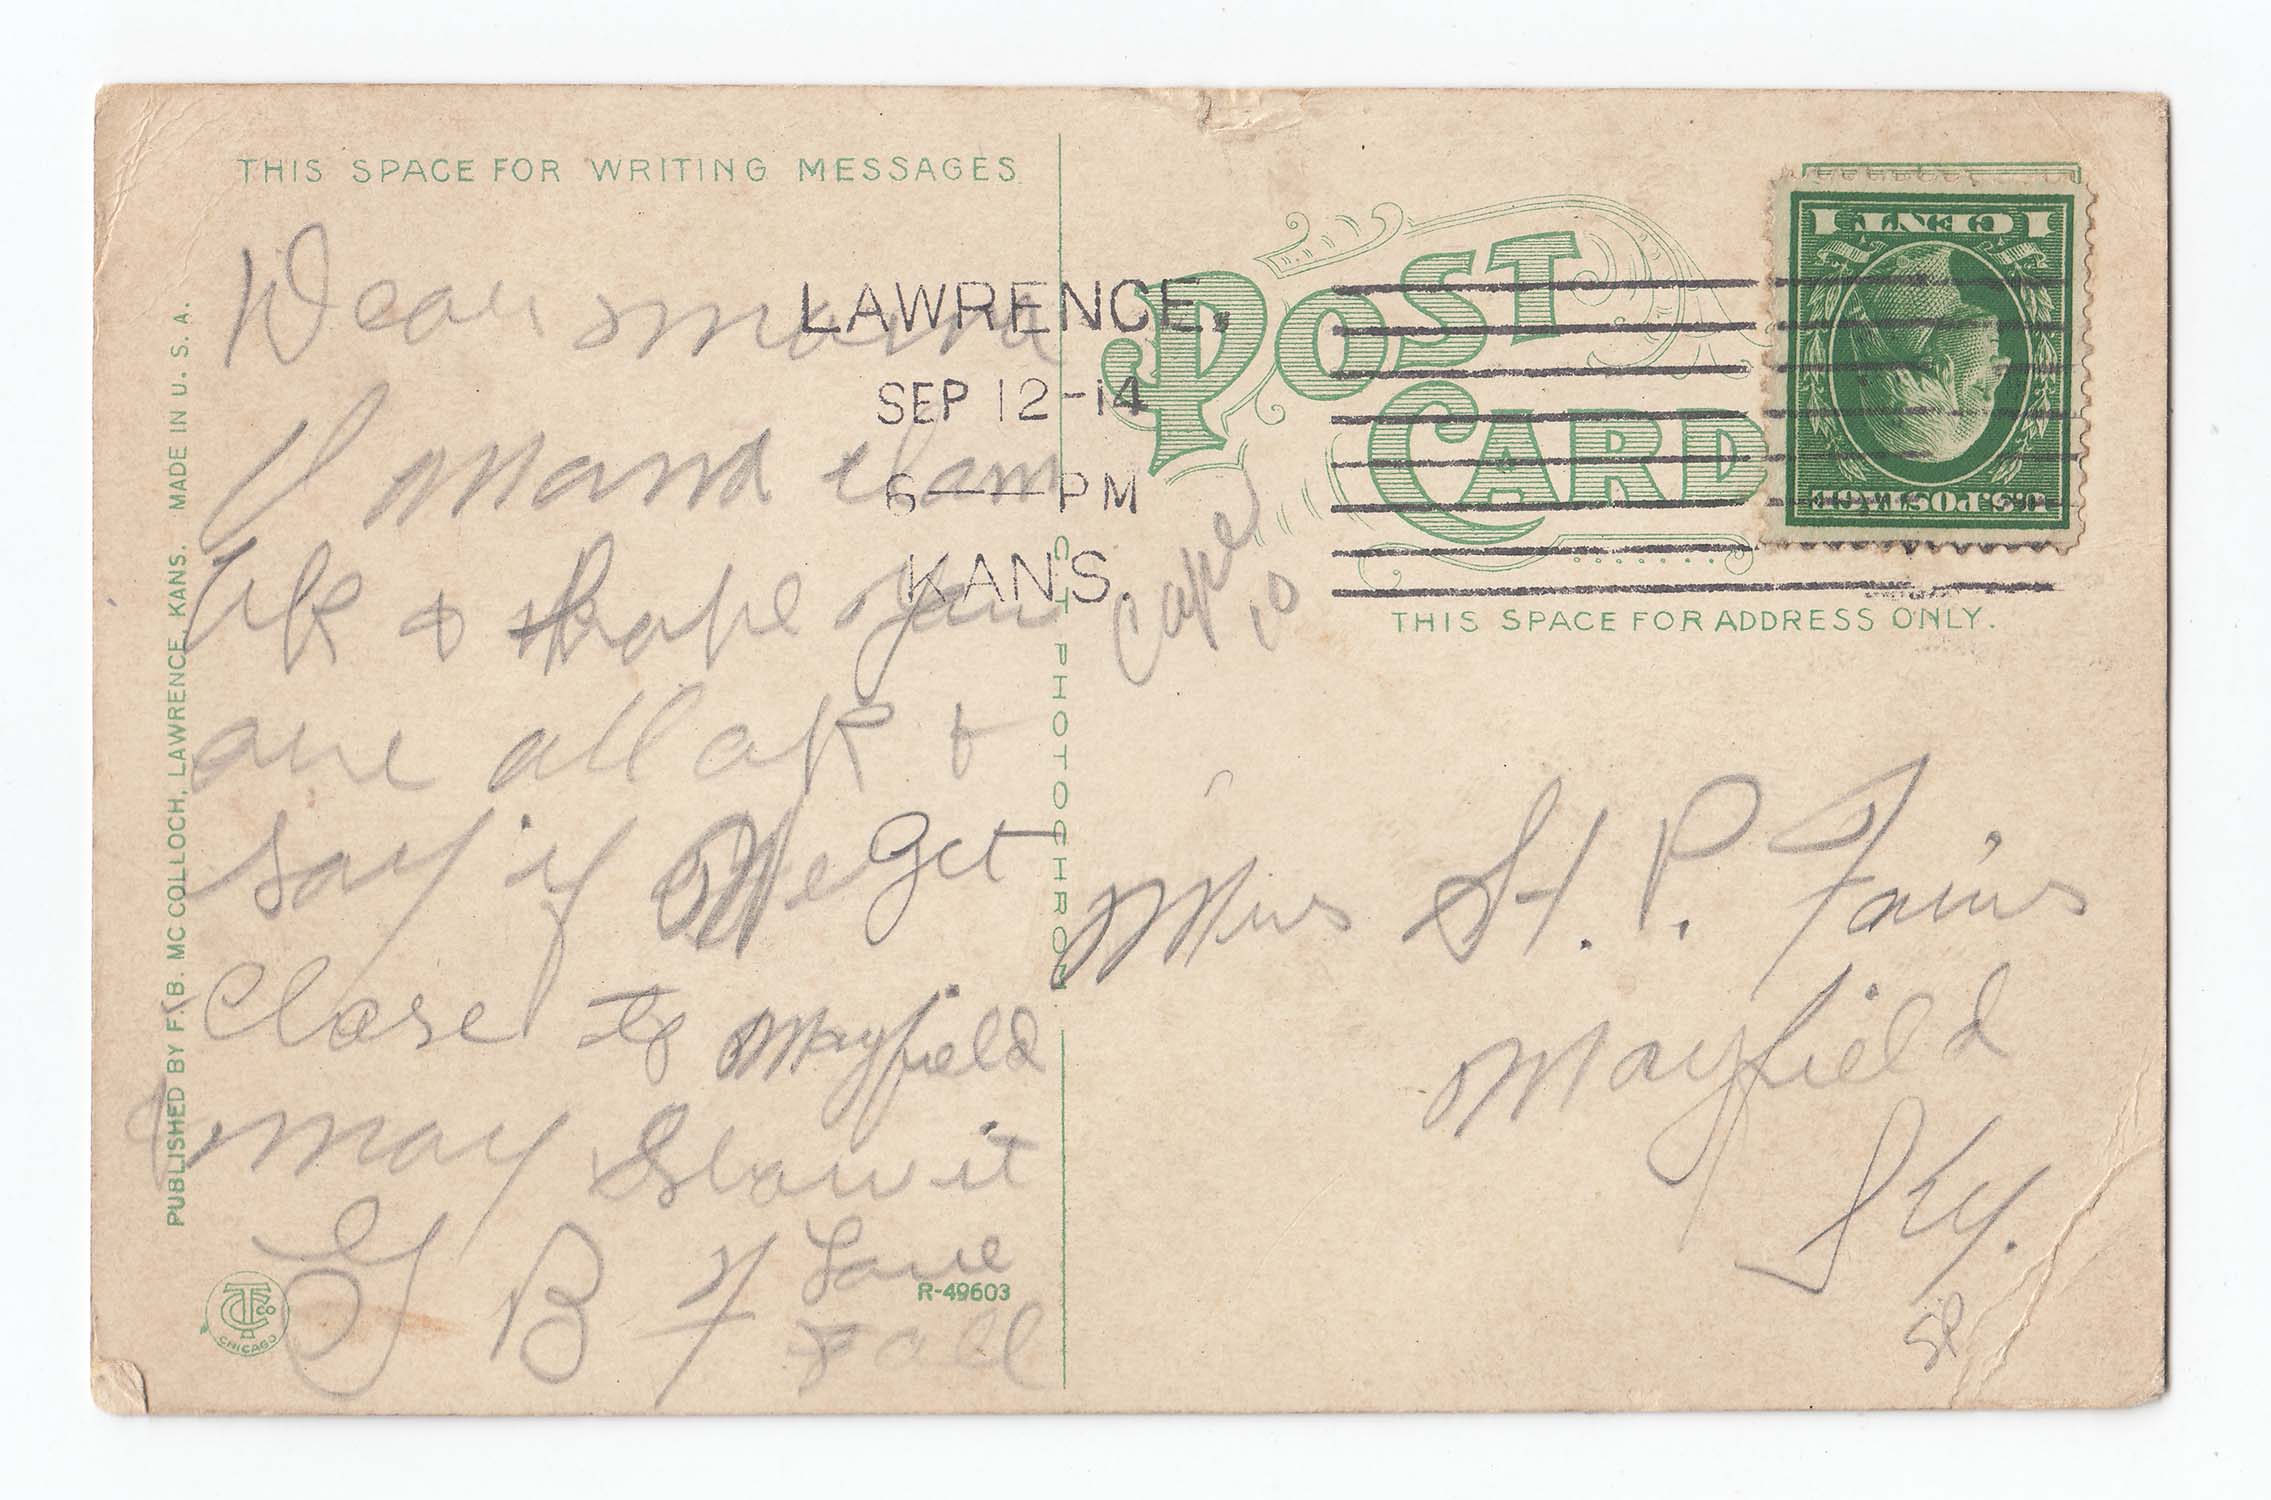 THIS SPACE FOR WRITING MESSAGES
Dear mama
I and
ok & hope you
are all ok &
say if we get
close to Mayfield
may Slow it
G B F Love
all
R-49603
PUBLISHED BY F. B. MC COLLOCH, LAWRENCE, KANS. MADE IN U. S. A.
CTCO
CHICAGO
C. T. PHOTOCHROM
POST CARD
LAWRENCE,
SEP 12-14
6 — PM
KANS.
10
1 CENT 1
U.S. POSTAGE
THIS SPACE FOR ADDRESS ONLY.
Mrs H. P. Fairis
Mayfield
Ky.